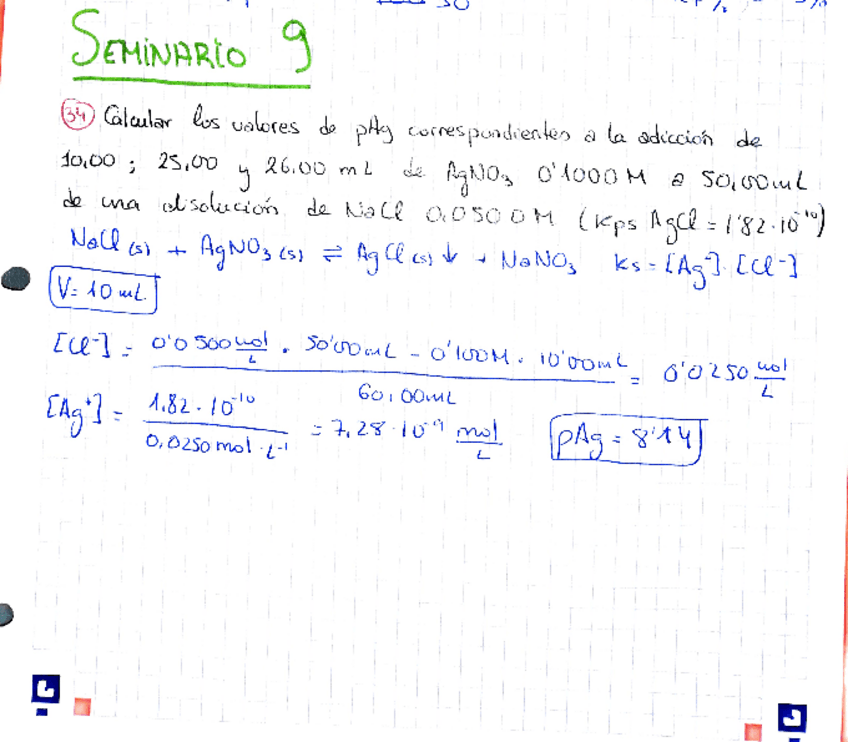 SEMINARIO 9
34 Calcular los valores de pAg correspondientes a la adicción de
10,00 ; 25,00 y 26.00 mL de AgNO₃ 0'1000 M a 50,00 mL
de una disolución de NaCl 0,0500M (Kps AgCl = 1'82·10⁻¹⁰)
NaCl (s) + AgNO₃ (s) ⇌ AgCl (s) ↓ + NaNO₃ Ks = [Ag⁺]·[Cl⁻]
V = 10 mL.
[Cl⁻] = (0'0500 mol/L · 50'00 mL - 0'100M · 10'00 mL) / 60,00 mL = 0'0250 mol/L
[Ag⁺] = 1.82·10⁻¹⁰ / 0,0250 mol·L⁻¹ = 7,28·10⁻⁹ mol/L pAg = 8'14